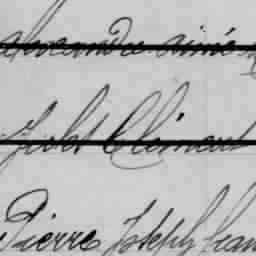 alexandre aimé
Jules Clément
Pierre Joseph Jean